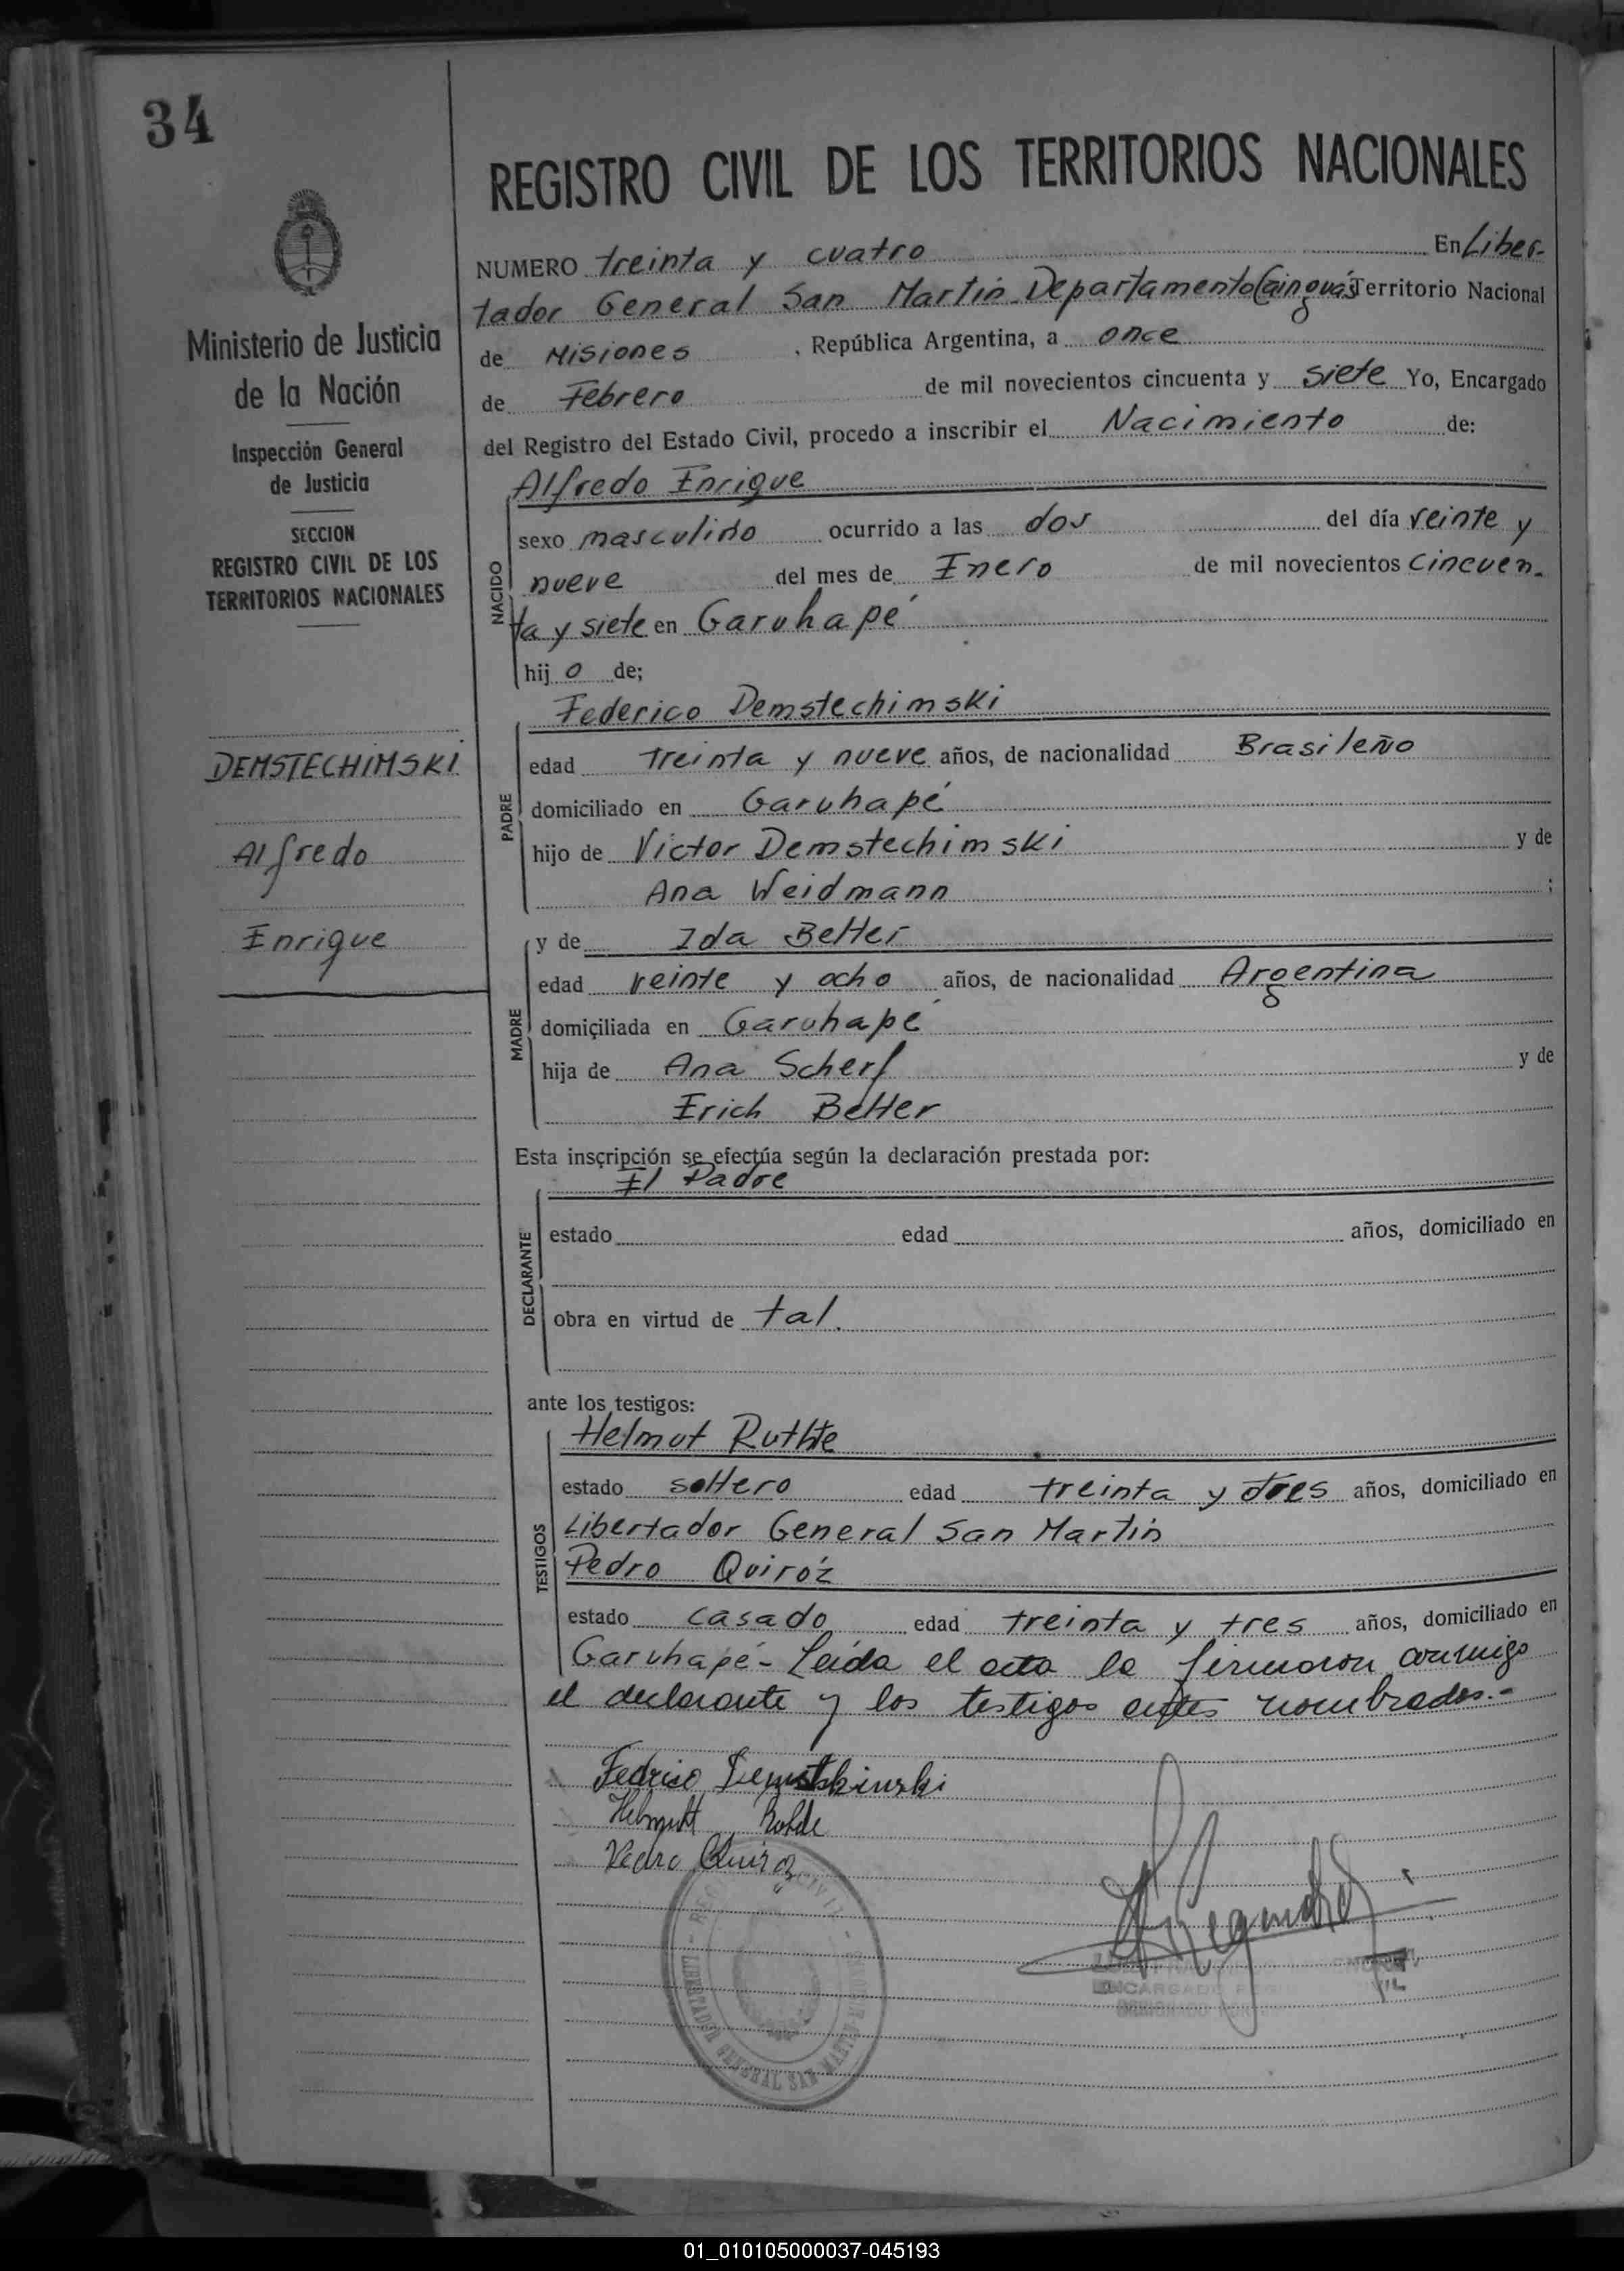 34
REGISTRO CIVIL DE LOS TERRITORIOS NACIONALES
Ministerio de Justicia
de la Nación
Inspección General
de Justicia
SECCION
REGISTRO CIVIL DE LOS
TERRITORIOS NACIONALES
DEMSTECHIMSKI
Alfredo
Enrique
NUMERO treinta y cuatro En Liber-
tador General San Martín Departamento Cainguás Territorio Nacional
de Misiones, República Argentina, a once
de Febrero de mil novecientos cincuenta y siete Yo, Encargado
del Registro del Estado Civil, procedo a inscribir el Nacimiento de:
NACIDO
Alfredo Enrique
sexo masculino ocurrido a las dos del día veinte y
nueve del mes de Enero de mil novecientos cincuen-
ta y siete en Garuhapé
hijo de;
PADRE
Federico Demstechimski
edad treinta y nueve años, de nacionalidad Brasileño
domiciliado en Garuhapé
hijo de Victor Demstechimski y de
Ana Weidmann;
MADRE
y de Ida Better
edad veinte y ocho años, de nacionalidad Argentina
domiciliada en Garuhapé
hija de Ana Scherf y de
Erich Better
Esta inscripción se efectúa según la declaración prestada por:
DECLARANTE
El Padre
estado edad años, domiciliado en
obra en virtud de tal.
ante los testigos:
TESTIGOS
Helmut
estado soltero edad treinta y tres años, domiciliado en
Libertador General San Martín
Pedro Quiróz
estado casado edad treinta y tres años, domiciliado en
Garuhapé- Leída el acta la firmaron conmigo
el declarante y los testigos antes nombrados.-
Pedro Quiroz
LIBERTADOR GENERAL SAN MARTIN
ENCARGADO
01_010105000037-045193